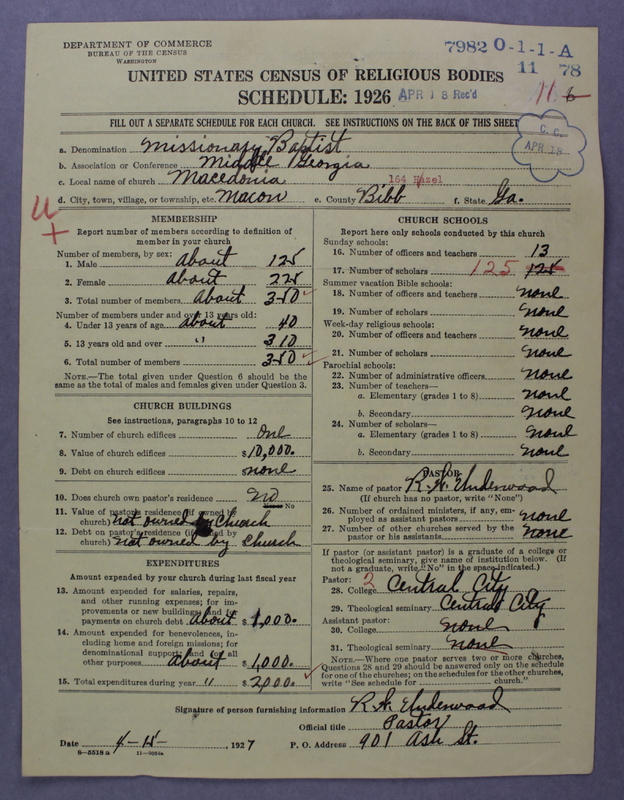 DEPARTMENT OF COMMERCE
BUREAU OF THE CENSUS
WASHINGTON
7982 0-1-1-A
11 78
UNITED STATES CENSUS OF RELIGIOUS BODIES
SCHEDULE: 1926
APR 18 Rec'd
11 6
FILL OUT A SEPARATE SCHEDULE FOR EACH CHURCH. SEE INSTRUCTIONS ON THE BACK OF THIS SHEET
C. C.
APR 18
a. Denomination Missionary Baptist
b. Association or Conference Middle Georgia
c. Local name of church Macedonia 164 Hazel
d. City, town, village, or township, etc. Macon e. County Bibb f. State Ga.
MEMBERSHIP
Report number of members according to definition of
member in your church
Number of members, by sex:
1. Male about 125
2. Female about 225
3. Total number of members about 350
Number of members under and over 13 years old:
4. Under 13 years of age about 40
5. 13 years old and over " 310
6. Total number of members 350
NOTE.—The total given under Question 6 should be the
same as the total of males and females given under Question 3.
CHURCH BUILDINGS
See instructions, paragraphs 10 to 12
7. Number of church edifices one
8. Value of church edifices $10,000.
9. Debt on church edifices $none
10. Does church own pastor's residence no
No
11. Value of pastor's residence (if owned by
church) not owned by Church
12. Debt on pastor's residence (if owned by
church) not owned by church
EXPENDITURES
Amount expended by your church during last fiscal year
13. Amount expended for salaries, repairs,
and other running expenses; for im-
provements or new buildings; and for
payments on church debt About $1,000.
14. Amount expended for benevolences, in-
cluding home and foreign missions; for
denominational support; and for all
other purposes about $1,000.
15. Total expenditures during year " $2000.
CHURCH SCHOOLS
Report here only schools conducted by this church
Sunday schools:
16. Number of officers and teachers 13
17. Number of scholars 125 125
Summer vacation Bible schools:
18. Number of officers and teachers none
19. Number of scholars none
Week-day religious schools:
20. Number of officers and teachers none
21. Number of scholars none
Parochial schools:
22. Number of administrative officers none
23. Number of teachers—
a. Elementary (grades 1 to 8) none
b. Secondary none
24. Number of scholars—
a. Elementary (grades 1 to 8) none
b. Secondary none
PASTOR
25. Name of pastor R. W. Underwood
(If church has no pastor, write "None")
26. Number of ordained ministers, if any, em-
ployed as assistant pastors none
27. Number of other churches served by the
pastor or his assistants none
If pastor (or assistant pastor) is a graduate of a college or
theological seminary, give name of institution below. (If
not a graduate, write "No" in the space indicated.)
Pastor: 2
28. College Central City
29. Theological seminary Central City
Assistant pastor:
30. College none
31. Theological seminary none
NOTE.—Where one pastor serves two or more churches,
Questions 28 and 29 should be answered only on the schedule
for one of the churches; on the schedules for the other churches,
write "See schedule for church."
Signature of person furnishing information R. W. Underwood
Official title Pastor
Date 4-15- 1927 P. O. Address 901 Ash St.
8—5518 a